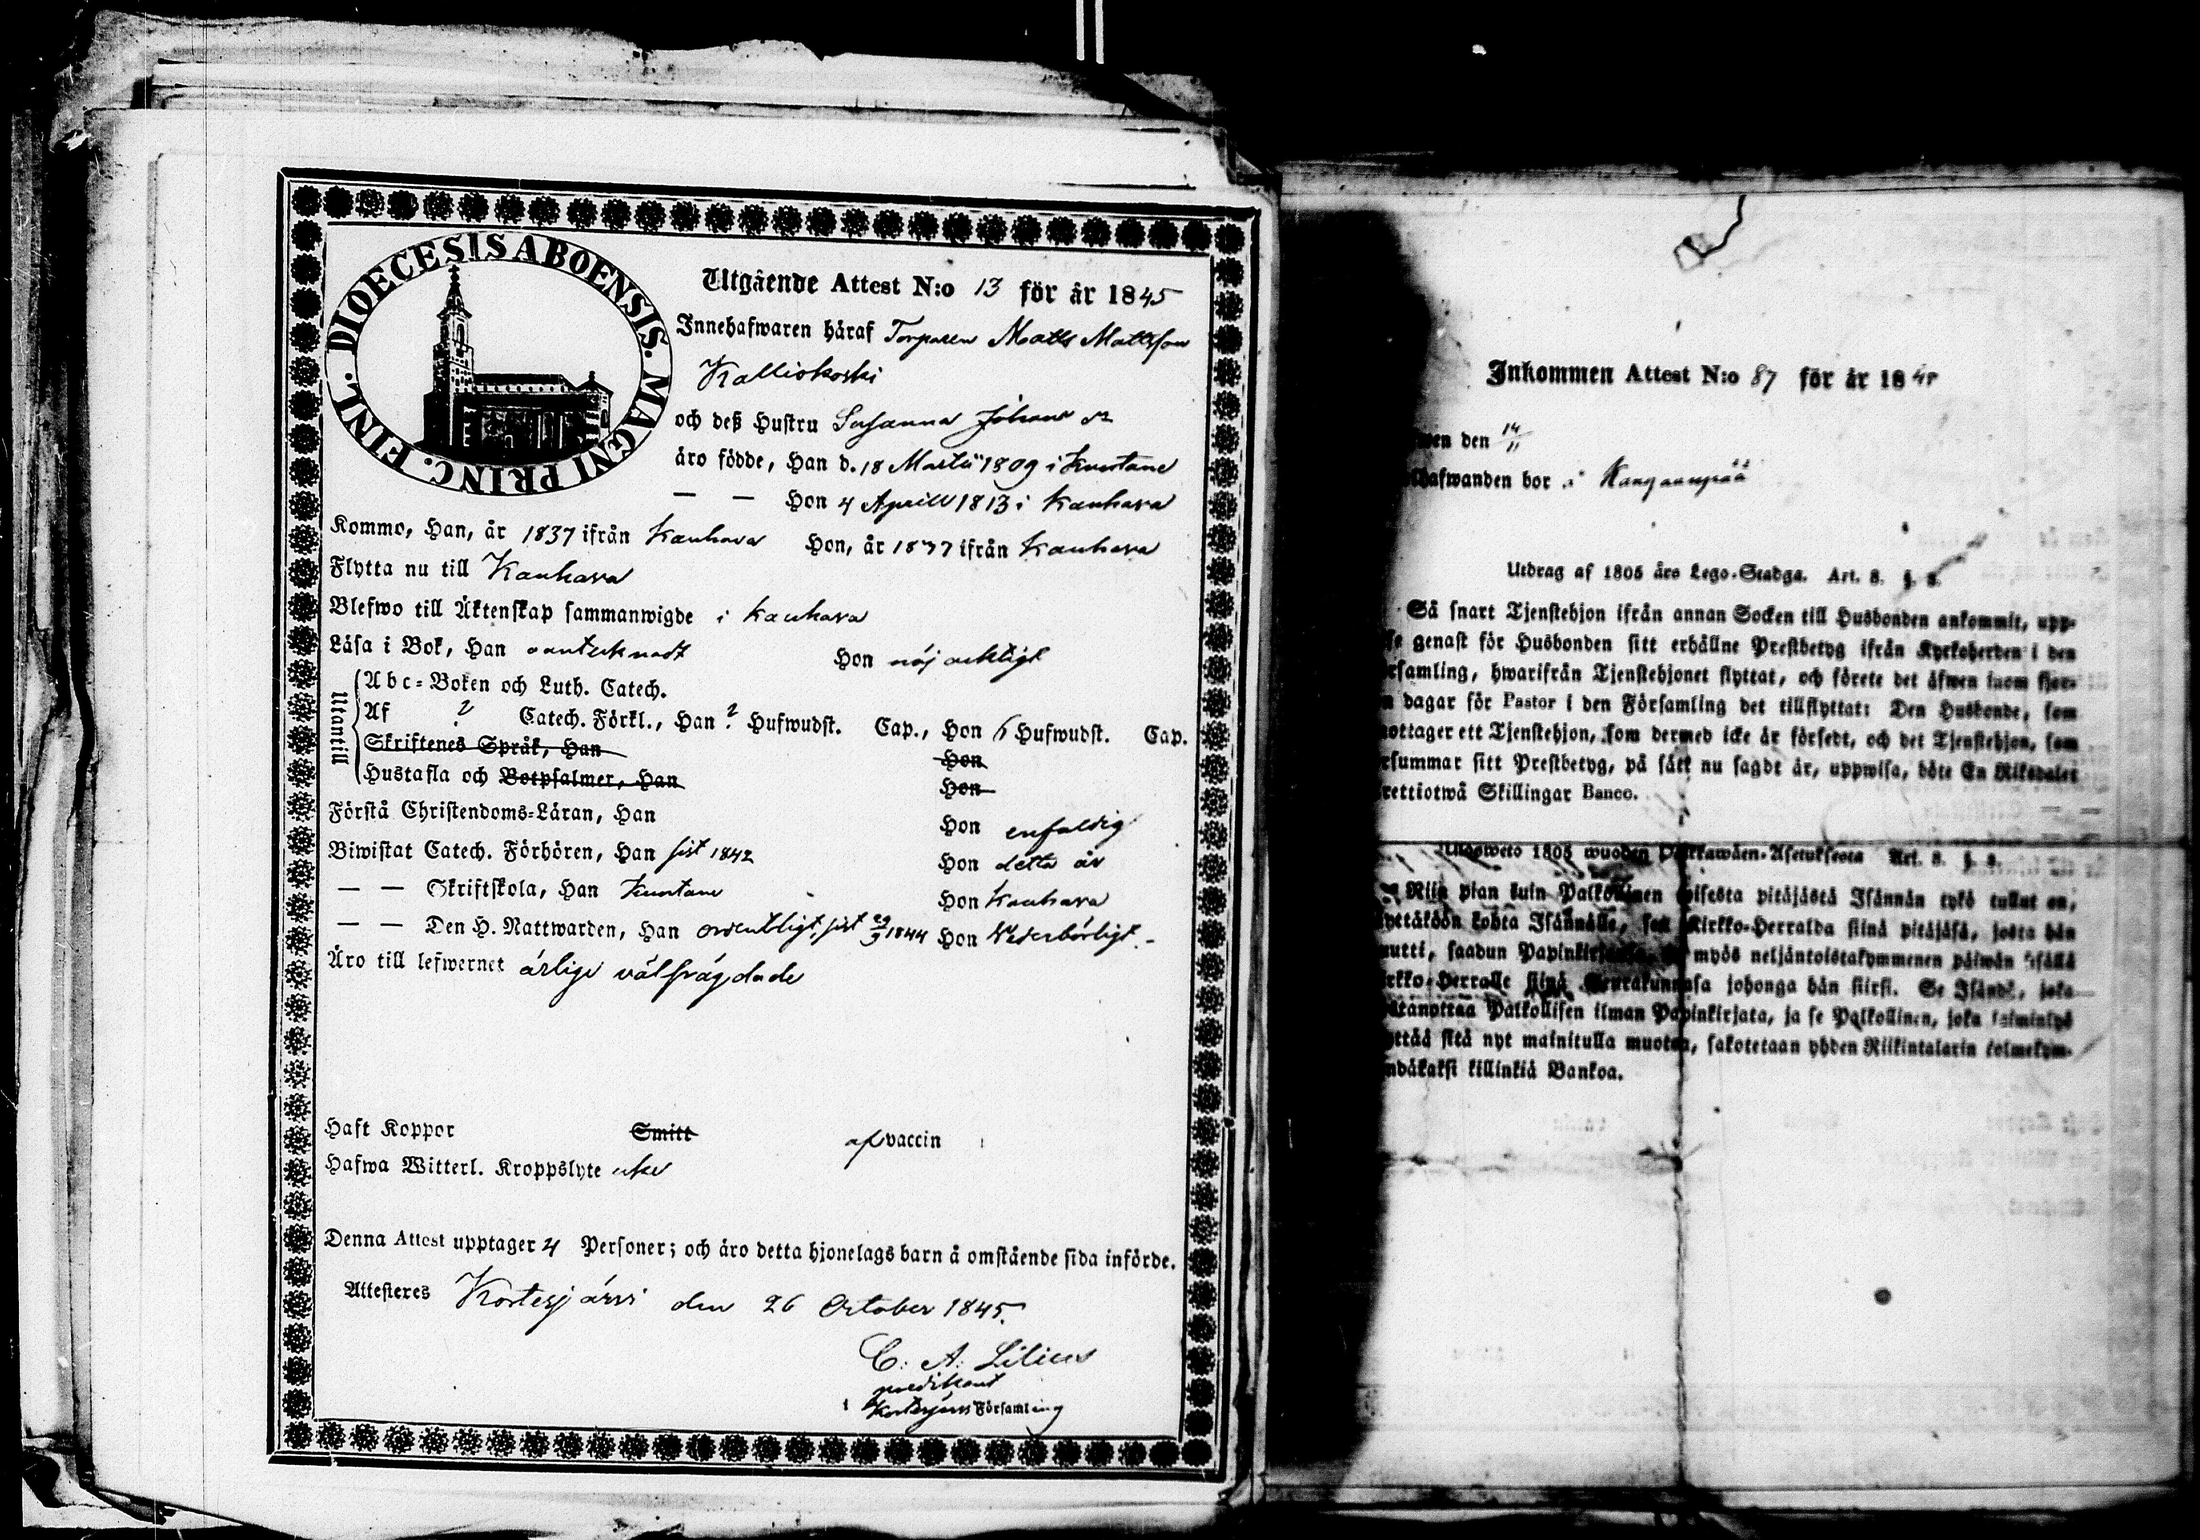 DIOECESIS ABOENSIS. MAGNI PRINC. FINL.
Utgående Attest N:o 13 för år 1845
Innehafwaren häraf Torparen Matts Mattsson
Kalliokoski
och deß Hustru Susanna Johans dr
äro födde, Han d. 18 Martii 1809 i Kuortane
— — Hon 4 Aprill 1813 i Kauhava
Kommo, Han, år 1837 ifrån Kauhava Hon, år 1837 ifrån Kauhava
Flytta nu till Kauhava
Blefwo till Äktenskap sammanwigde i Kauhava
Läsa i Bok, Han Hon nöjaktligt
Utantill
Abc-Boken och Luth. Catech.
Af ? Catech. Förkl., Han ? Hufwudst. Cap., Hon 6 Hufwudst. Cap.
Skriftenes Språk, Han Hon
Hustafla och Botpsalmer, Han Hon
Förstå Christendoms-Läran, Han Hon enfaldig
Biwistat Catech. Förhören, Han sist 1842 Hon detta år
— — Skriftskola, Han Kuortane Hon Kauhava
— — Den H. Nattwarden, Han ordentligt, sist 29/9 1844 Hon Wederbörligt.
Äro till lefwernet ärlige välfrägdade
Haft Koppor Smitt af vaccin
Hafwa Witterl. Kroppslyte icke
Denna Attest upptager 4 Personer; och äro detta hjonelags barn å omstående sida införde.
Attesteres Kortesjärvi den 26 October 1845.
C. A. Lilius
predikant
Kortesjärvi Församling
Inkommen Attest N:o 87 för år 1845
wen den 14/11
hafwanden bor i Kangaanpää
Utdrag af 1805 års Lego-Stadga. Art. 8. §. 8.
Så snart Tjenstehjon ifrån annan Socken till Husbonden ankommit, upp-
genast för Husbonden sitt erhållne Prestbetyg ifrån Kyrkoherden i den
rsamling, hwarifrån Tjenstehjonet flyttat, och förete det äfwen inom fjor-
n dagar för Pastor i den Församling det tillflyttat: Den Husbonde, som
ottager ett Tjenstehjon, som dermed icke är försedt, och det Tjenstehjon, som
rsummar sitt Prestbetyg, på sätt nu sagdt är, uppwisa, böte En Riksdaler
rettiotwå Skillingar Banco.
Ulosweto 1805 wuoden Palkkawäen-Asetuksesta Art. 8. §. 8.
Niin pian kuin Palkollinen toisesta pitäjästä Isännän tykö tullut on,
yttäköön kohta Isännälle, sen Kirkko-Herralda siinä pitäjäsä, josta hän
mutti, saadun Papinkirjansa, ja myös neljäntoistakymmenen päiwän sisällä
rkko-Herralle siinä Seurakunnasa johonga hän siirsi. Se Isändä, joka
stänottaa Palkollisen ilman Papinkirjata, ja se Palkollinen, joka laiminlyö
yttää sitä nyt mainitulla muotoa, sakotetaan yhden Riikintalarin kolmekym-
ndäkaksi killinkiä Bankoa.